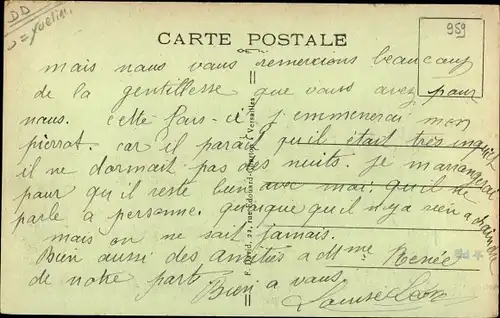 DD
959
CARTE POSTALE
mais nous vous remercions beaucoup
de la gentillesse que vous avez pour
nous. cette fois-ci j emmenerai mon
pierrot. car il parait qu'il était très inquiet
il ne dormait pas des nuits. je m'arrangerai
pour qu'il reste bien avec moi. qu'il ne
parle a personne. quoique qu'il n'y a rien a craindre
mais on ne sait jamais.
Bien aussi des amitiés a Mme Renée
de notre part.
Bien a vous
Louise
F. David, 22, rue Edouard-Charton, Versailles